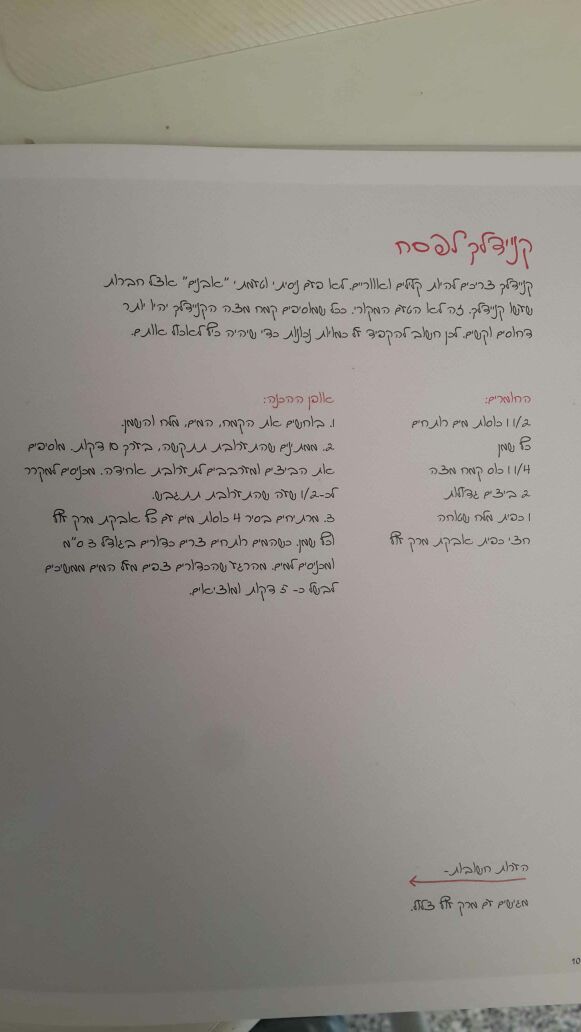 קניידלך לפסח
קניידלך צריכים להיות קלילים ואווריים. לא פעם ניסיתי וטעמתי "אבנים" אצל חברות
שעשו קניידלך. זה לא הטעם המקורי. ככל שמוסיפים קמח מצה הקניידלך יהיו יותר
דחוסים וקשים. לכן חשוב להקפיד על כמויות נכונות כדי שיהיה כיף לאכול אותם.
החומרים:
1 1/2 כוסות מים רותחים
כף שמן
1 1/4 כוס קמח מצה
2 ביצים גדולות
1 כפית מלח שטוחה
חצי כפית אבקת מרק עוף
אופן ההכנה:
1. בוחשים את הקמח, המים, מלח והשמן.
2. ממתינים שהתערובת תתקשה, בערך 10 דקות. מוסיפים
את הביצים ומערבבים לתערובת אחידה. מכניסים למקרר
לכ-1/2 שעה שהתערובת תתגבש.
3. מרתיחים בסיר 4 כוסות מים עם כף אבקת מרק עוף
וכף שמן. כשהמים רותחים צרים כדורים בגודל 3 ס"מ
ומכניסים למים. מהרגע שהכדורים צפים מעל המים ממשיכים
לבשל כ- 5 דקות ומוציאים.
הערות חשובות-
מגישים עם מרק עוף צלול.
10